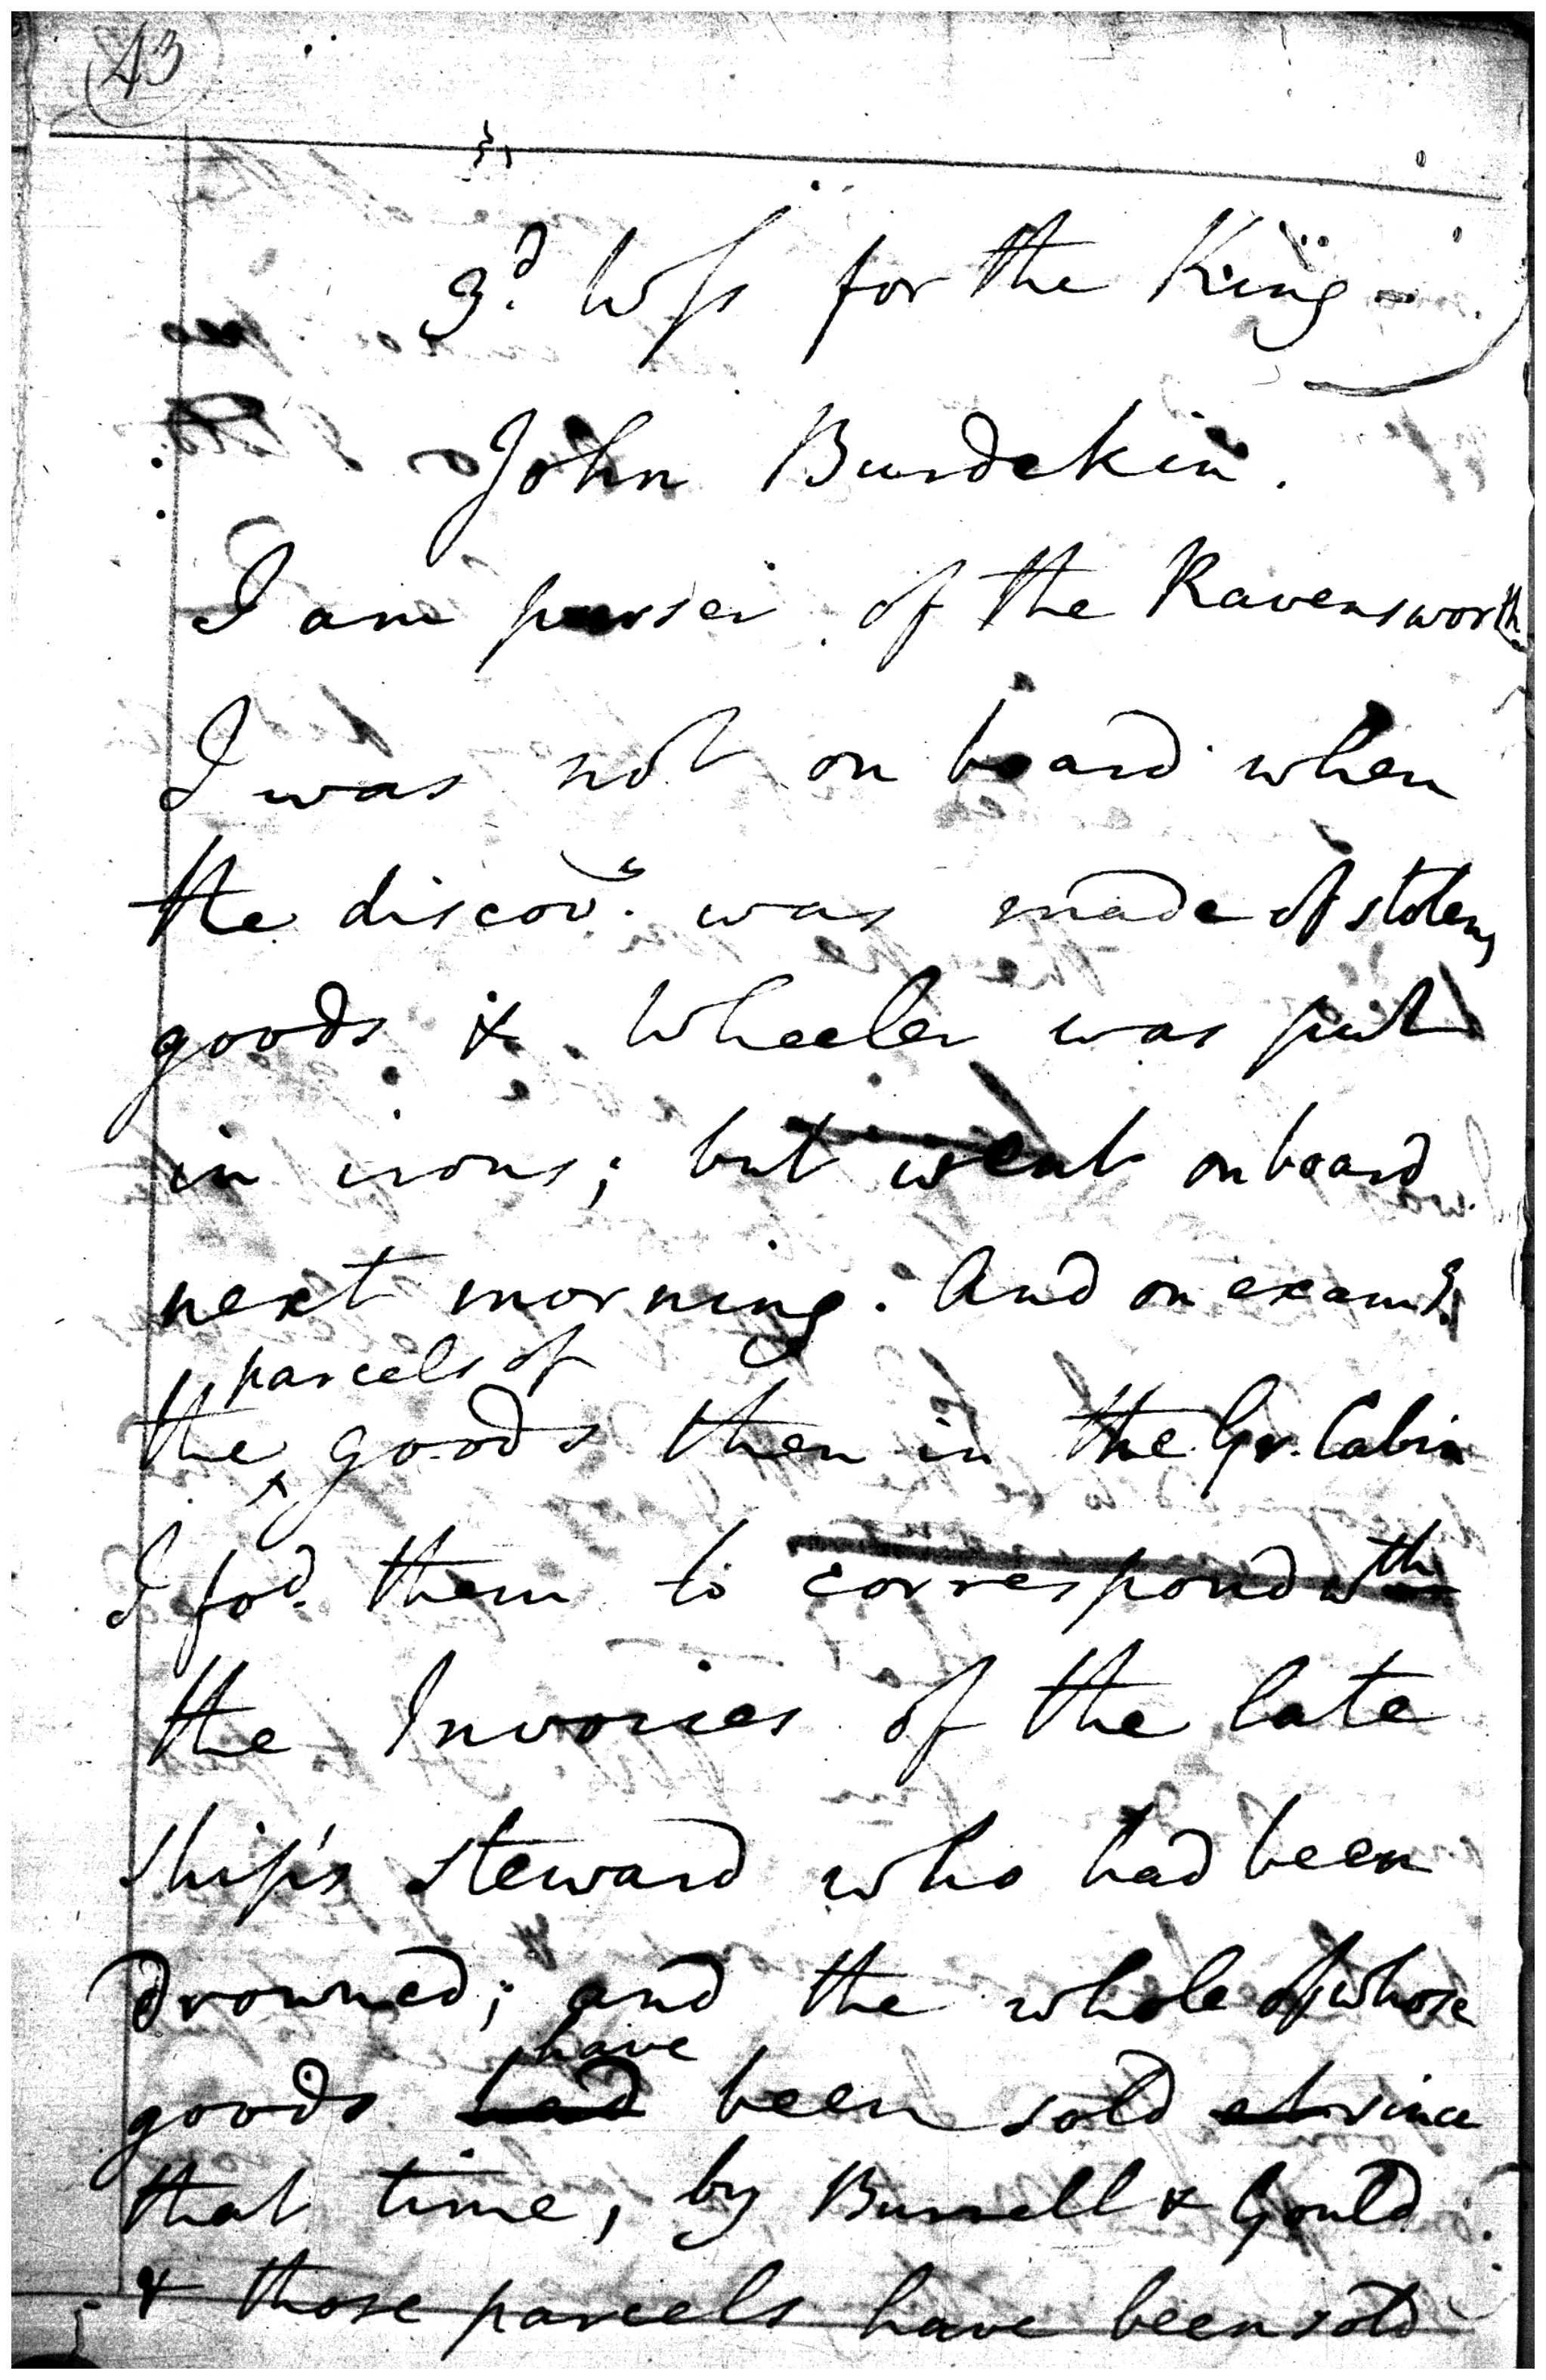 43
3d. Wss for the King -
John Burdekin.
I am purser of the Ravensworth
I was not on board when
the discovy. was made of stolen
goods & Wheeler was put
in irons; but went on board
next morning. And on examg.
parcels of
the goods then in the Gr. Cabin
I fod. them to correspond wth
the Invoices of the late
ship's steward who had been
drowned; and the whole of whose
have
goods had been sold at since
that time, by Burnell & Gould
& those parcels have been sold